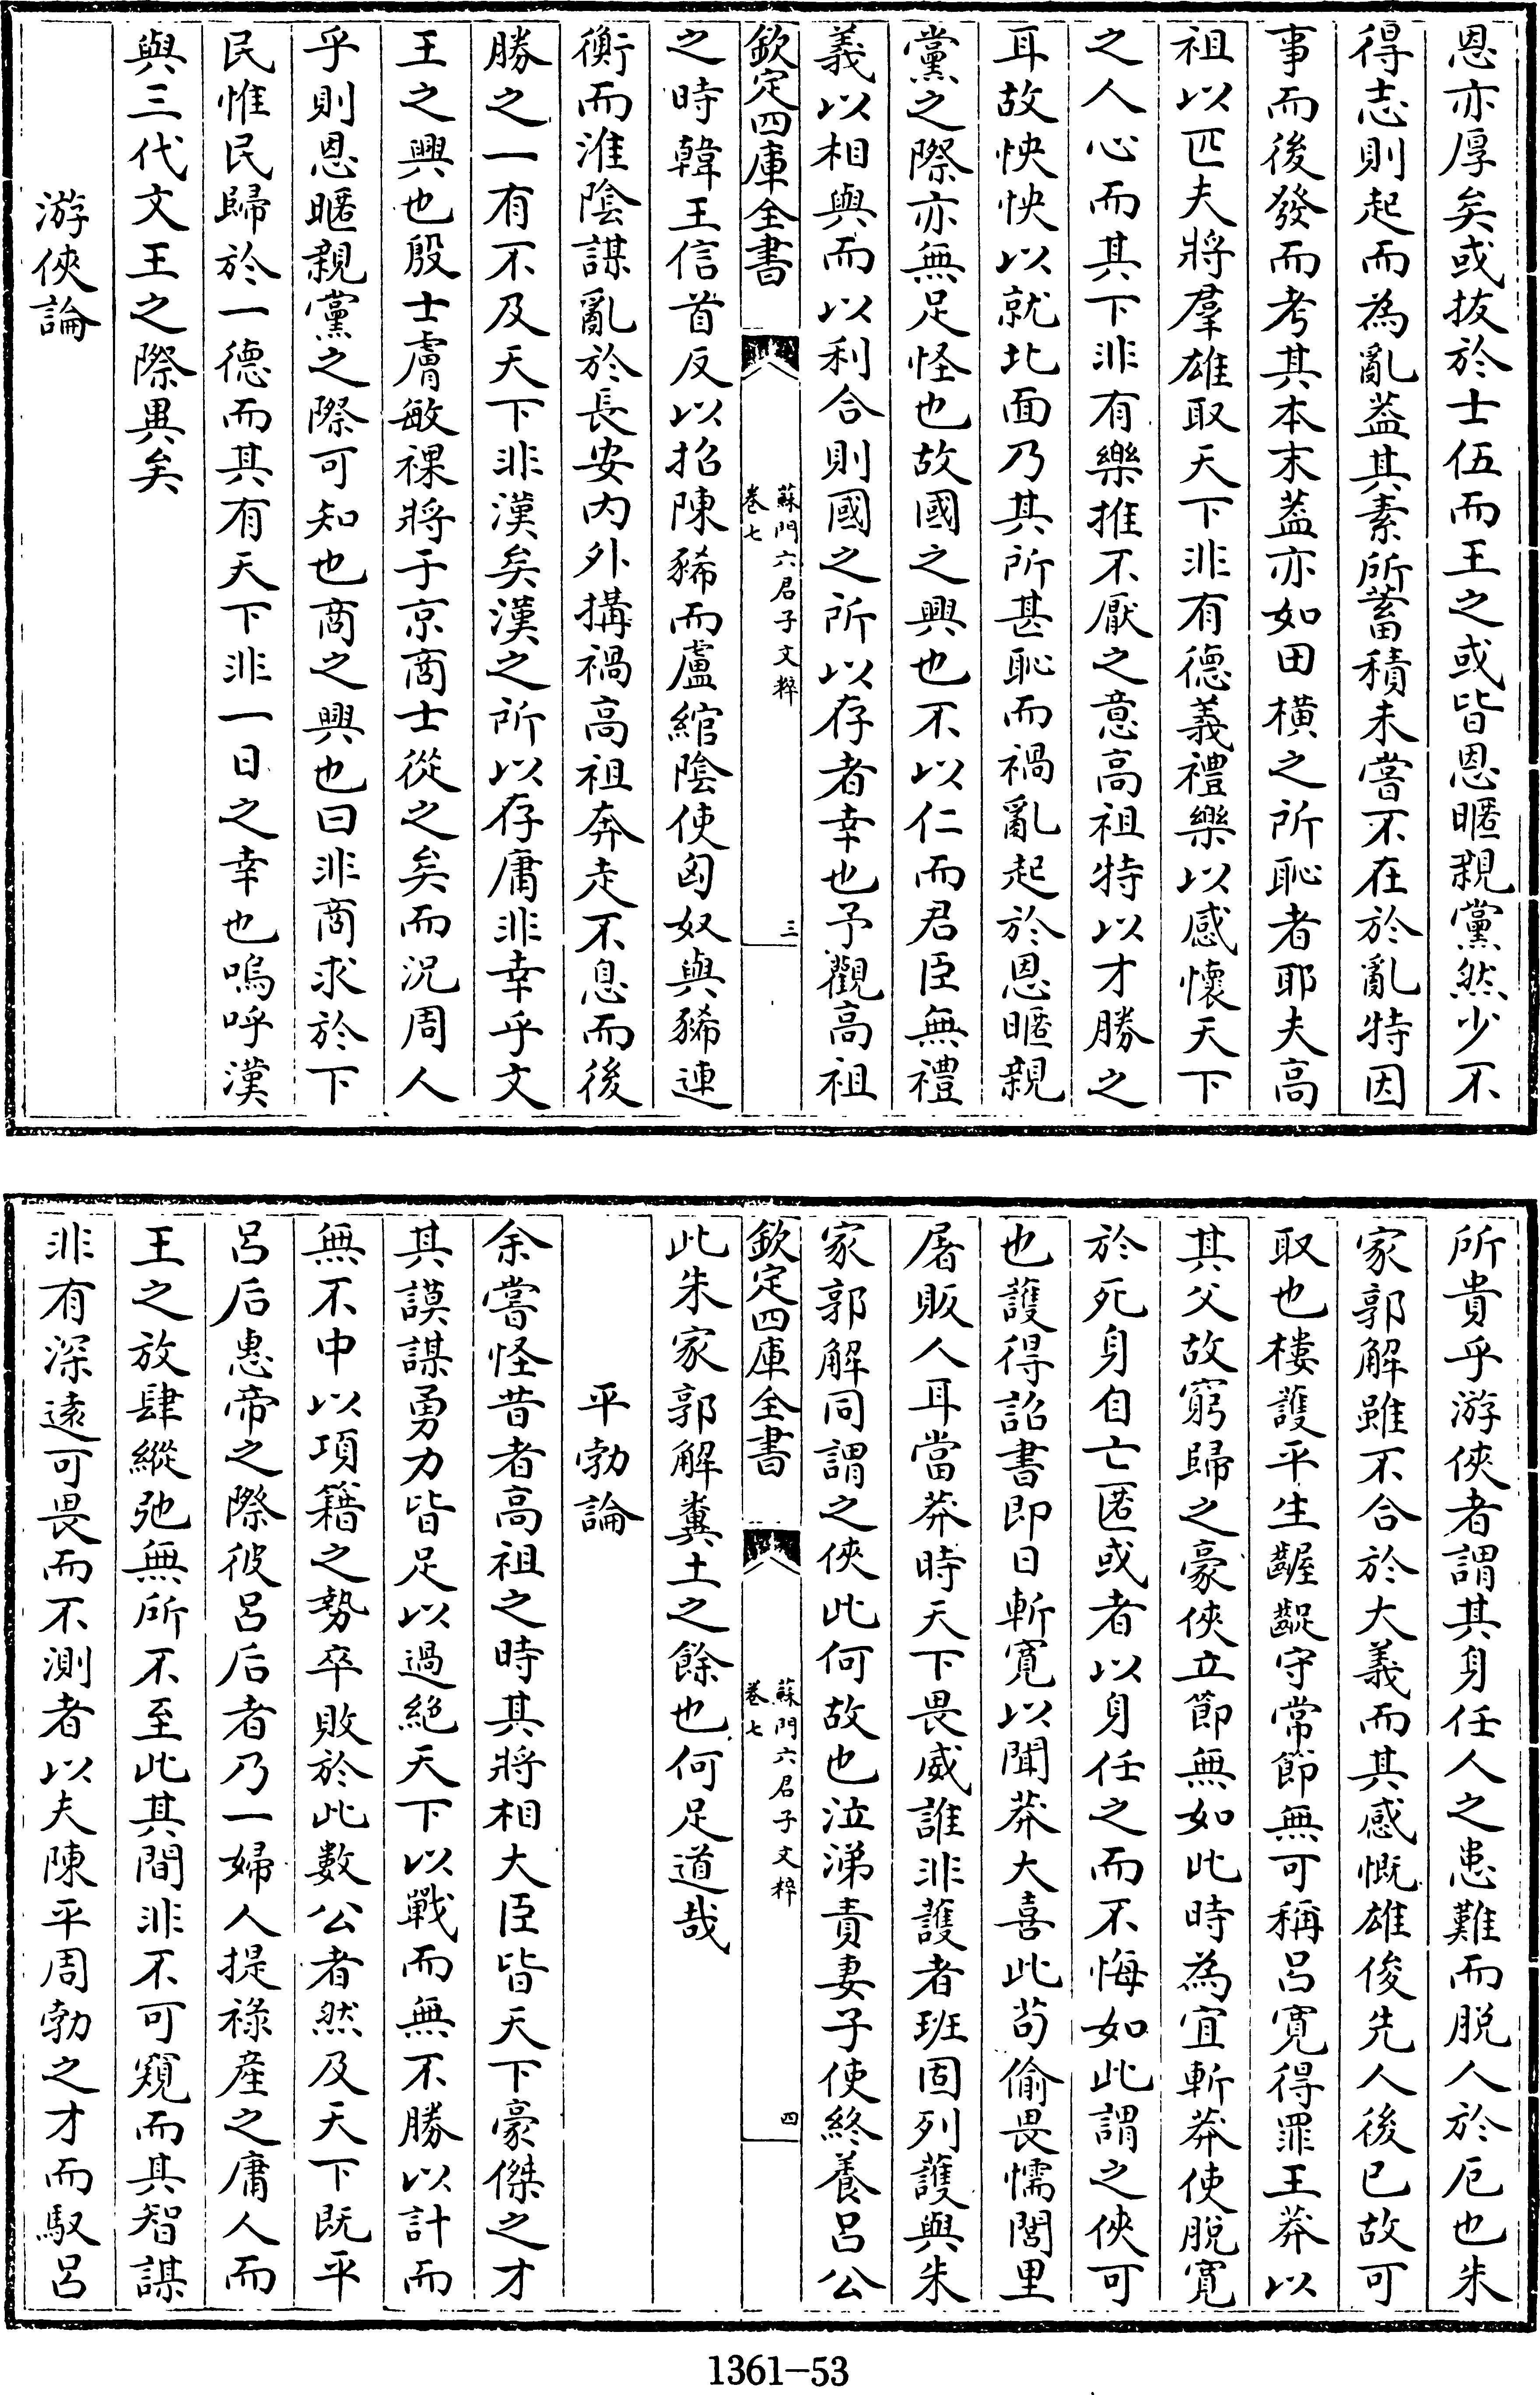 恩亦厚矣或拔於士伍而王之或皆恩暱親黨然少不
得志則起而為亂葢其素所蓄積未嘗不在於亂特因
事而後發而考其本末葢亦如田橫之所恥者耶夫高
祖以匹夫將羣雄取天下非有德義禮樂以感懷天下
之人心而其下非有樂推不厭之意高祖特以才勝之
耳故怏怏以就北面乃其所甚恥而禍亂起於恩暱親
黨之際亦無足怪也故國之興也不以仁而君臣無禮
義以相與而以利合則國之所以存者幸也予觀高祖
欽定四庫全書
蘇門六君子文粹
卷七
三
之時韓王信首反以招陳豨而盧綰陰使匈奴與豨連
衡而淮陰謀亂於長安内外搆禍高祖奔走不息而後
勝之一有不及天下非漢矣漢之所以存庸非幸乎文
王之興也殷士膚敏祼將于京商士從之矣而況周人
乎則恩暱親黨之際可知也商之興也曰非商求於下
民惟民歸於一德而其有天下非一日之幸也嗚呼漢
與三代文王之際異矣
游俠論
所貴乎游俠者謂其身任人之患難而脱人於厄也朱
家郭解雖不合於大義而其感慨雄俊先人後已故可
取也樓護平生齷齪守常節無可稱呂寛得罪王莽以
其父故窮歸之豪俠立節無如此時為宜斬莽使脱寛
於死身自亡匿或者以身任之而不悔如此謂之俠可
也護得詔書即日斬寛以聞莽大喜此苟偷畏懦閭里
屠販人耳當莽時天下畏威誰非護者班固列護與朱
家郭解同謂之俠此何故也泣涕責妻子使終養呂公
欽定四庫全書
蘇門六君子文粹
卷七
四
此朱家郭解糞土之餘也何足道哉
平勃論
余嘗怪昔者高祖之時其將相大臣皆天下豪傑之才
其謨謀勇力皆足以過絶天下以戰而無不勝以計而
無不中以項籍之勢卒敗於此數公者然及天下既平
呂后惠帝之際彼呂后者乃一婦人提祿産之庸人而
王之放肆縱弛無所不至此其間非不可窺而其智謀
非有深逺可畏而不測者以夫陳平周勃之才而馭呂
1361-53